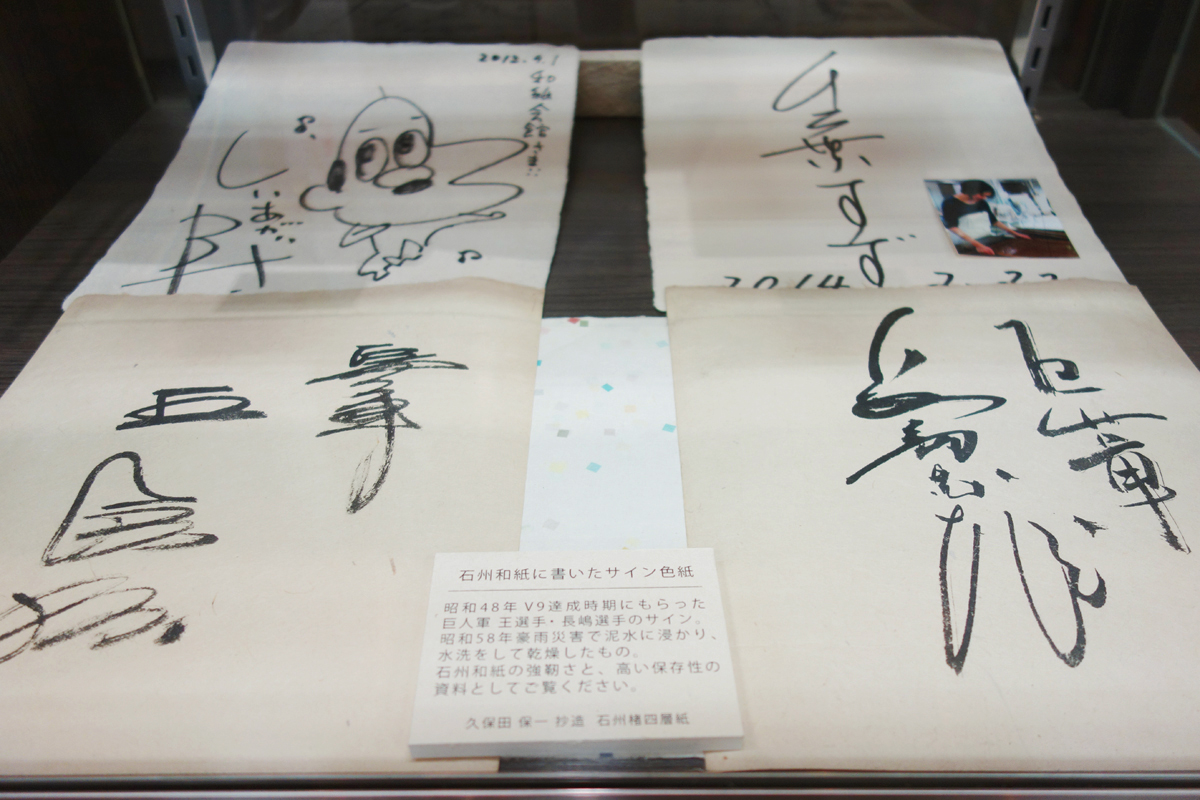 2012.4.1
和紙会館さま
しいあがぃ
千葉すず
2014. 2. 22
巨人軍
王
巨人軍
長嶋茂雄
石州和紙に書いたサイン色紙
昭和48年 V9達成時期にもらった
巨人軍 王選手・長嶋選手のサイン。
昭和58年豪雨災害で泥水に浸かり、
水洗をして乾燥したもの。
石州和紙の強靭さと、高い保存性の
資料としてご覧ください。
久保田 保一 抄造 石州楮四層紙